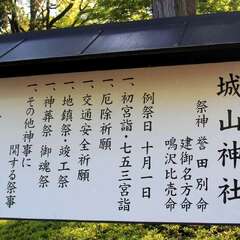 城山神社
祭神 誉田別命
建御名方命
鳴沢比売命
例祭日 十月一日
一、初宮詣・七五三宮詣
一、厄除祈願
一、交通安全祈願
一、地鎮祭 竣工祭
一、神葬祭 御魂祭
一、その他神事に
関する祭事